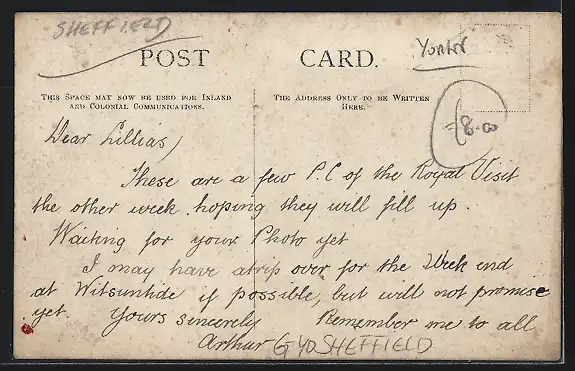 SHEFFIELD
POST CARD.
Yorks
THIS SPACE MAY NOW BE USED FOR INLAND
AND COLONIAL COMMUNICATIONS.
THE ADDRESS ONLY TO BE WRITTEN
HERE.
Dear Lillias
These are a few P.C of the Royal Visit
the other week. hoping they will fill up.
Waiting for your Photo yet
I may have a trip over for the Week end
at Witsuntide if possible, but will not promise
yet. Yours sincerely Remember me to all
Arthur GYOSHEFFIELD